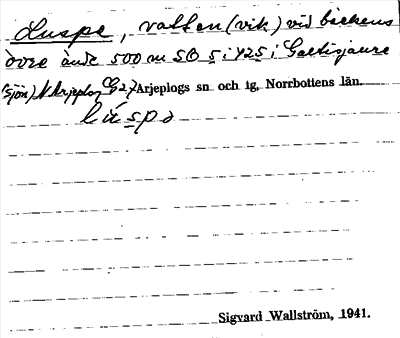 Luspe, vatten (vik) vid bäckens
övre ände 500 m SO s i 425 i Gaetisjaure
(sjön) N Arjeplog Arjeplogs sn och tg, Norrbottens län.
Sigvard Wallström, 1941.